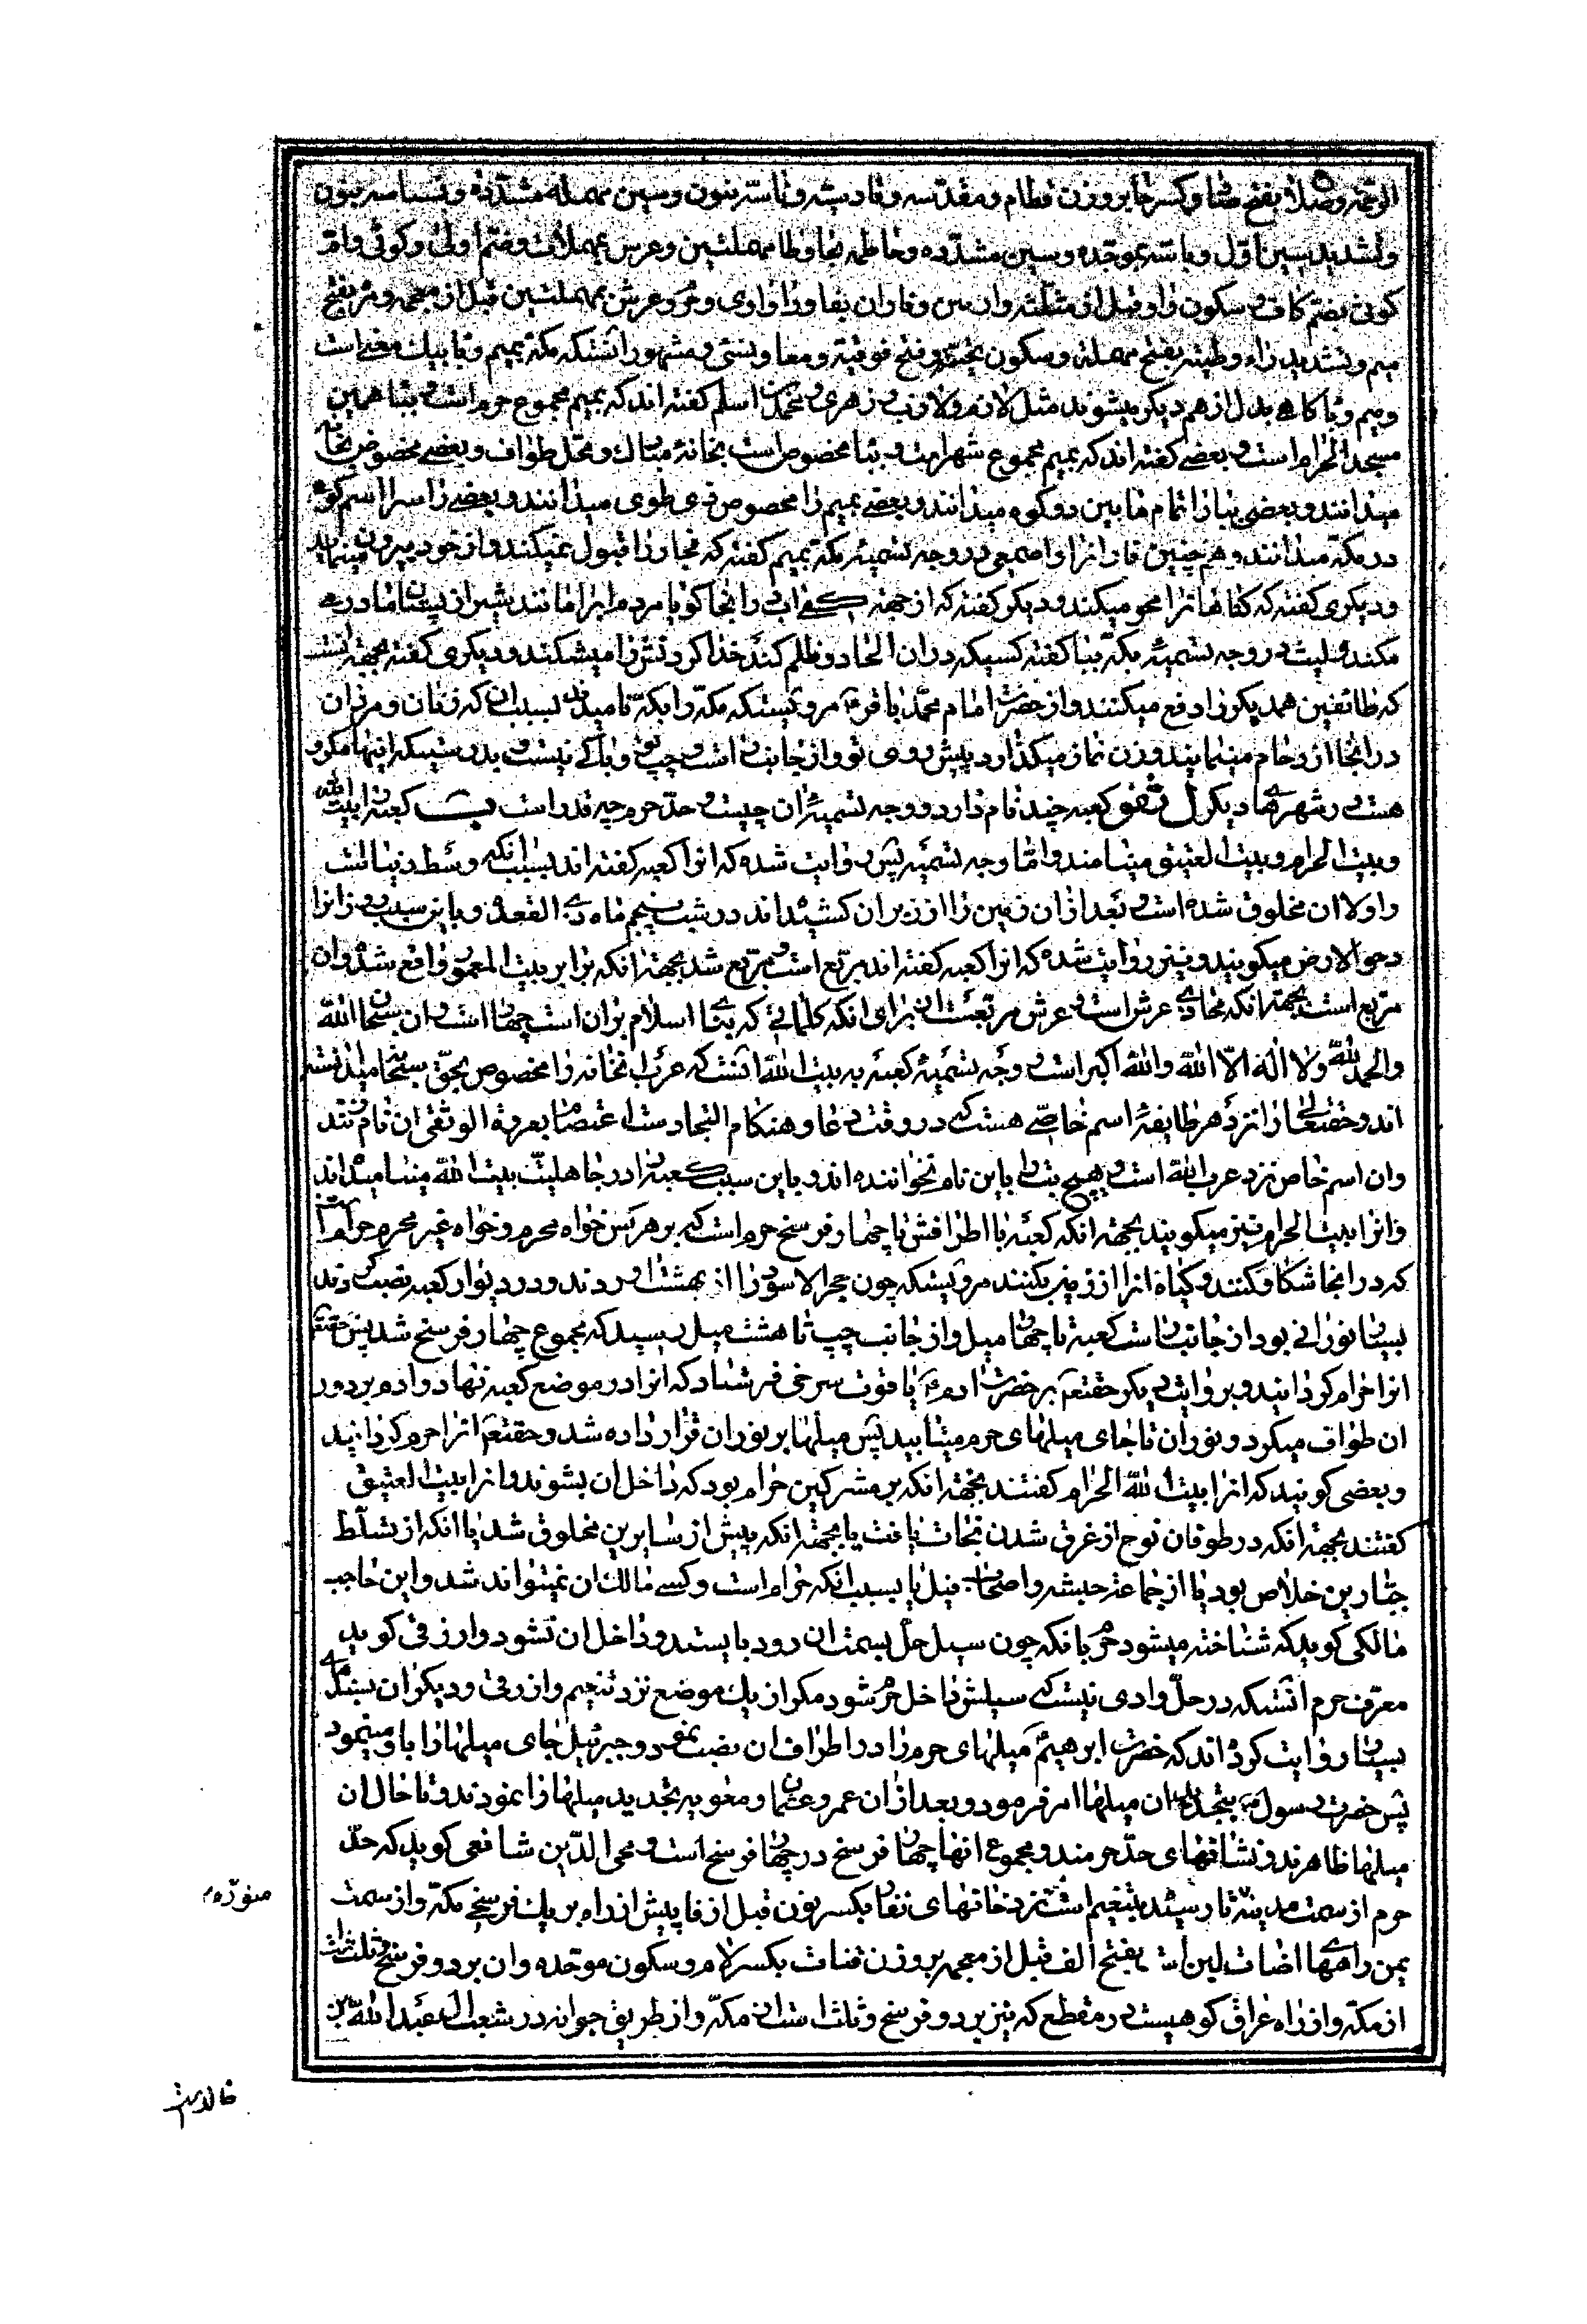 الرحمة وصلاح بفتح صاد و کسر حا بر وزن قطام و مقدسه و قادسیه و ناسّه بنون و سین مهمله مشدّده و نساسه بنون
و تشدید سین اوّل و باسّه بموحّده و سین مشدّده و حاطمه بحا و طا مهملتین و عرس بمهملات و ضمّ اولی و کوثی و امّ
کوثی بضمّ کاف و سکون واو قبل از مثلثه و ان من و فاران بفا و را و اوی و عرش بمهملتین قبل از معجمه و بفتح
میم و تشدید راء و بفتح مهمله و سکون تحتیه و فتح فوقیه و معاد و مشهور آنستکه مکه بمیم و با بیک معنی است
و میم و با کاهی بدل از هم دیکر میشوند مثل لازم و لازب و زهری و محمد بن اسلم کفته اند که بمیم مجموع حرم است و ببا همین
مسجد الحرام است و بعضی کفته اند که بمیم مجموع شهر است و ببا مخصوص است بخانه مبارک و محل طواف و بعضی مخصوص بخانه
میدانند و بعضی ببا را تمام ما بین دو کوه میدانند و بعضی بمیم را مخصوص ذی طوی میدانند و بعضی را سرا اسم کوه
در مکه میدانند و هم چنین فاران را و اصمعی در وجه تسمیه مکه بمیم کفته که فجار را قبول نمیکند و از خود بیرون مینماید
و دیکری کفته که کناهانرا محو میکند و دیکر کفته که از جهة کم آبی در انجا کویا مردم ابرا مانند شیر از پستان مادر می
مکند و لیث در وجه تسمیه بکه ببا کفته کسیکه در ان الحاد و ظلم کند خدا کردنش را میشکند و دیکری کفته بجهة انست
که طائفین همدیکر را دفع میکنند و از حضرت امام محمد باقر ع مرویستکه مکه را بکه نامیدند بسبب ان که زنان و مردان
در انجا ازدحام مینمایند و زن نماز میکذارد پیش روی تو و از جانب راست و چپ تو و باکی نیست و بدرستیکه اینها مکروه
است در شهرهای دیکر کعبه چند نام دارد و وجه تسمیه ان چیست و حدّ حرم چه قدر است کعبه را بیت الله
و بیت الحرام و بیت العتیق مینامند و امّا وجه تسمیه پس روایت شده که انرا کعبه کفته اند بسبب انکه وسط دنیا است
و اولا ان مخلوق شده است و بعد از ان زمین را از زیر ان کشیده اند در شب پنجم ماه ذی القعده و باین سبب روز انرا
دحو الارض میکویند و نیز روایت شده که انرا کعبه کفته اند مربّع است و مربّع شد بجهة انکه برابر بیت المعمور واقع شد و ان
مربّع است بجهة انکه محاذی عرش است و عرش مربّعست از برای انکه کلماتی که بنای اسلام بران است چهار است و ان سبحان الله
و الحمد لله و لا اله الّا الله و الله اکبر است و وجه تسمیه کعبه به بیت الله انست که عرب انخانه را مخصوص بحق سبحانه میدانسته
اند و حقتعالی را نزد هر طایفه اسم خاصی هست که در وقت دعا و هنکام التجا دست اعتصام بعروة الوثقی ان نام زنند
و ان اسم خاص نزد عرب الله است و هیچ بت را باین نام نخوانده اند و باین سبب کعبه را در جاهلیت بیت الله مینامیده اند
و انرا بیت الحرام نیز میکویند بجهة انکه کعبه با اطرافش تا چهار فرسخ حرم است که بر هر کس خواه محرم و خواه غیر محرم حرام است
که در انجا شکار کنند و کیاه انرا از زمین بکنند مرویستکه چون حجر الاسود را از بهشت اوردند و در دیوار کعبه نصب کردند
بسیار نورانی بود از جانب راست کعبه تا چهار میل و از جانب چپ تا هشت میل رسید که مجموع چهار فرسخ شد پس حقتعالی
انرا حرام کردانید و بروایت دیکر حقتعالی بر حضرت ادم ع یاقوت سرخی فرستاد که انرا در موضع کعبه نهاد و ادم بر دور
ان طواف میکرد و نور ان تا جای میلهای حرم میتابید پس میلها بر نور ان قرار داده شد و حقتعالی انرا حرم کردانید
و بعضی کویند که انرا بیت الله الحرام کفتند بجهة انکه بر مشرکین حرام بود که داخل ان بشوند و انرا بیت العتیق
کفتند بجهة انکه در طوفان نوح از غرق شدن نجات یافت یا بجهة انکه پیش از سایر زمین مخلوق شد یا انکه از تسلّط
جبّارین خلاص بود یا از جماعة حبشه و اصحاب فیل یا بسبب انکه حرام است و کسی مالک ان نمیتواند شد و ابن حاجب
مالکی کوید که شناخته میشود حرم بانکه چون سیل حلّ بسمت ان رود بایستد و داخل ان نشود و ارزقی کوید
معرّف حرم انستکه در حلّ وادی نیست که سیلش داخل حرم شود مکر از یک موضع نزد تنعیم و ازرقی و دیکران بسندهای
بسیار روایت کرده اند که حضرت ابرهیم ع میلهای حرم را در اطراف ان نصب نمود و جبرئیل جای میلها را باو مینمود
پس حضرت رسول ص بتجدید ان میلها امر فرمود و بعد از ان عمر و عثمان و معویه تجدید میلها را نمودند و تا حال ان
میلها ظاهرند و نشانهای حدّ حرمند و مجموع انها چهار فرسخ در چهار فرسخ است و محی الدّین شافعی کوید که حدّ
حرم از سمت مدینه تا رسیدن بتنعیم است نزد خانهای نفار بکسر نون قبل از فا پیش از راه بر یک فرسخی مکه و از سمت
یمن راهی اضاة لبن است بفتح الف قبل از معجمه بر وزن قنات بکسر لام و سکون موحّده و ان بر دو فرسخ و ثلث است
از مکه و از راه عراق کوهیست در مقطع که نیز بر دو فرسخ و ثلث است از مکه و از طریق جعرانه در شعب ال عبد الله بن
منوره
خالدست